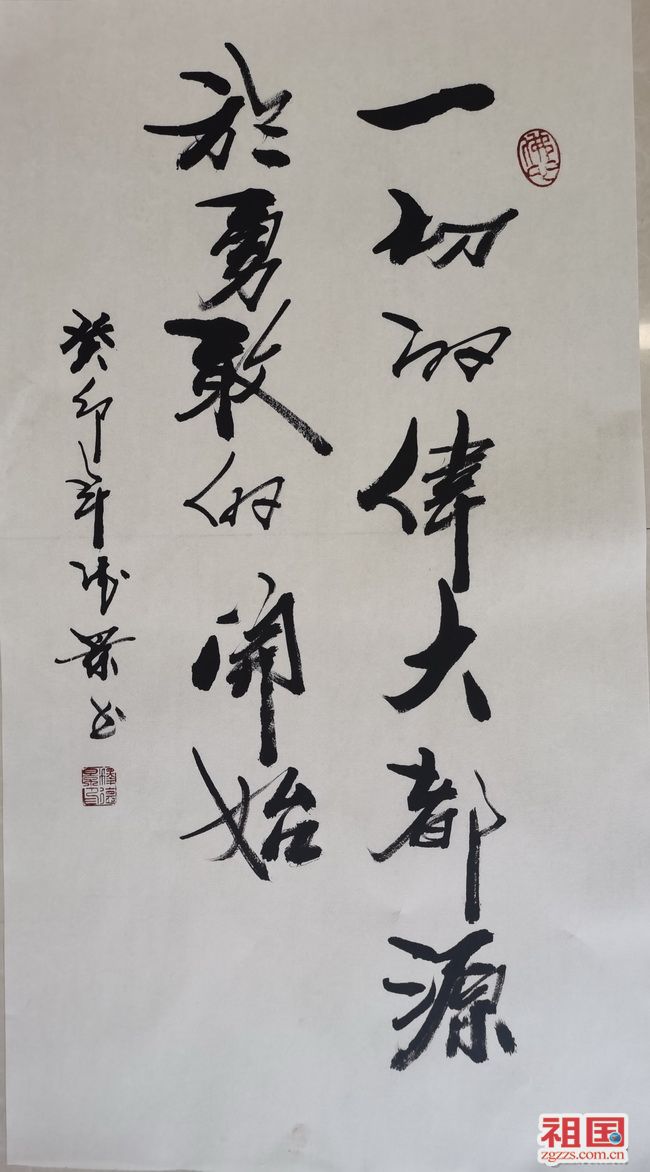 一切的偉大都源
於勇敢的開始
癸卯年德景书
祖国
zgzzs.com.cn